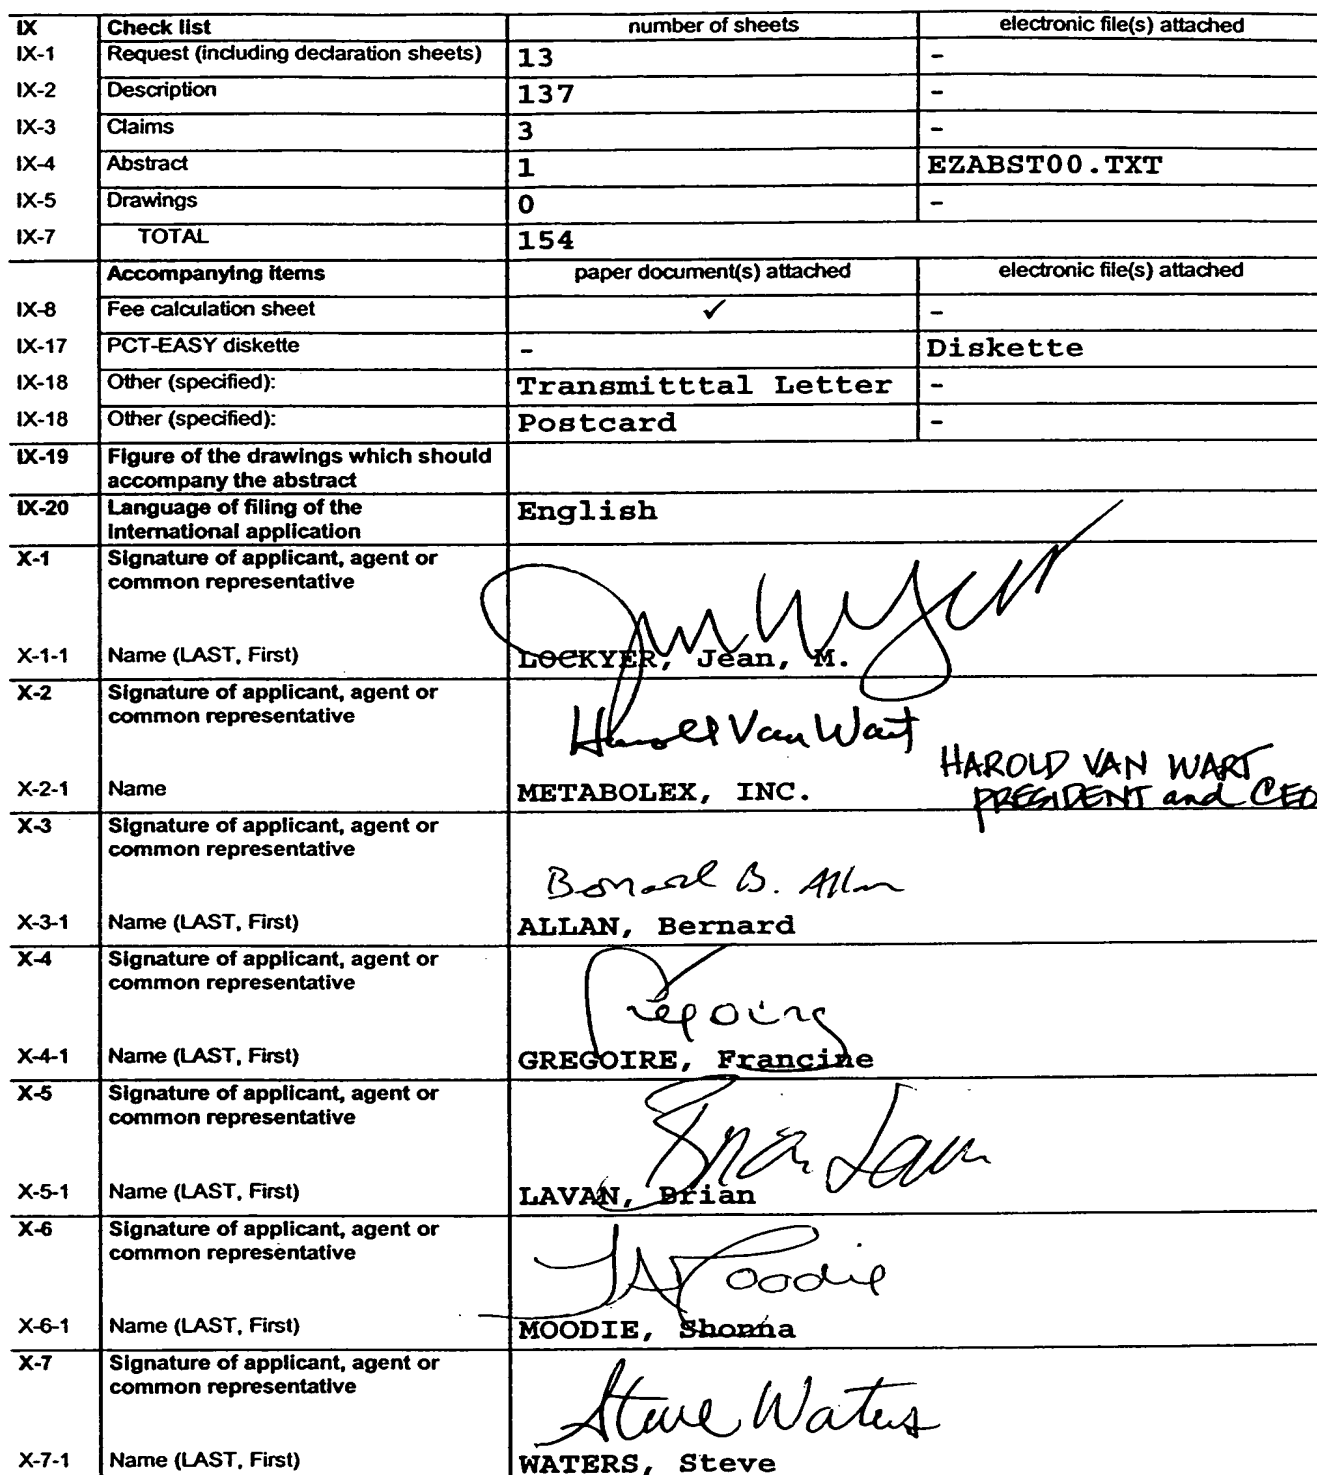 IX Check list number of sheets electronic file(s) attached
IX-1 Request (including declaration sheets) 13 -
IX-2 Description 137 -
IX-3 Claims 3 -
IX-4 Abstract 1 EZABST00.TXT
IX-5 Drawings 0 -
IX-7 TOTAL 154
Accompanying items paper document(s) attached electronic file(s) attached
IX-8 Fee calculation sheet ✓ -
IX-17 PCT-EASY diskette - Diskette
IX-18 Other (specified): Transmitttal Letter -
IX-18 Other (specified): Postcard -
IX-19 Figure of the drawings which should
accompany the abstract
IX-20 Language of filing of the English
international application
X-1 Signature of applicant, agent or
common representative
X-1-1 Name (LAST, First) LOCKYER, Jean, M.
X-2 Signature of applicant, agent or
common representative
Harold Van Wart
HAROLD VAN WART
PRESIDENT and CEO
X-2-1 Name METABOLEX, INC.
X-3 Signature of applicant, agent or
common representative
Bernard B. Allan
X-3-1 Name (LAST, First) ALLAN, Bernard
X-4 Signature of applicant, agent or
common representative
X-4-1 Name (LAST, First) GREGOIRE, Francine
X-5 Signature of applicant, agent or
common representative
Brian Lavan
X-5-1 Name (LAST, First) LAVAN, Brian
X-6 Signature of applicant, agent or
common representative
X-6-1 Name (LAST, First) MOODIE, Shonna
X-7 Signature of applicant, agent or
common representative
Steve Waters
X-7-1 Name (LAST, First) WATERS, Steve